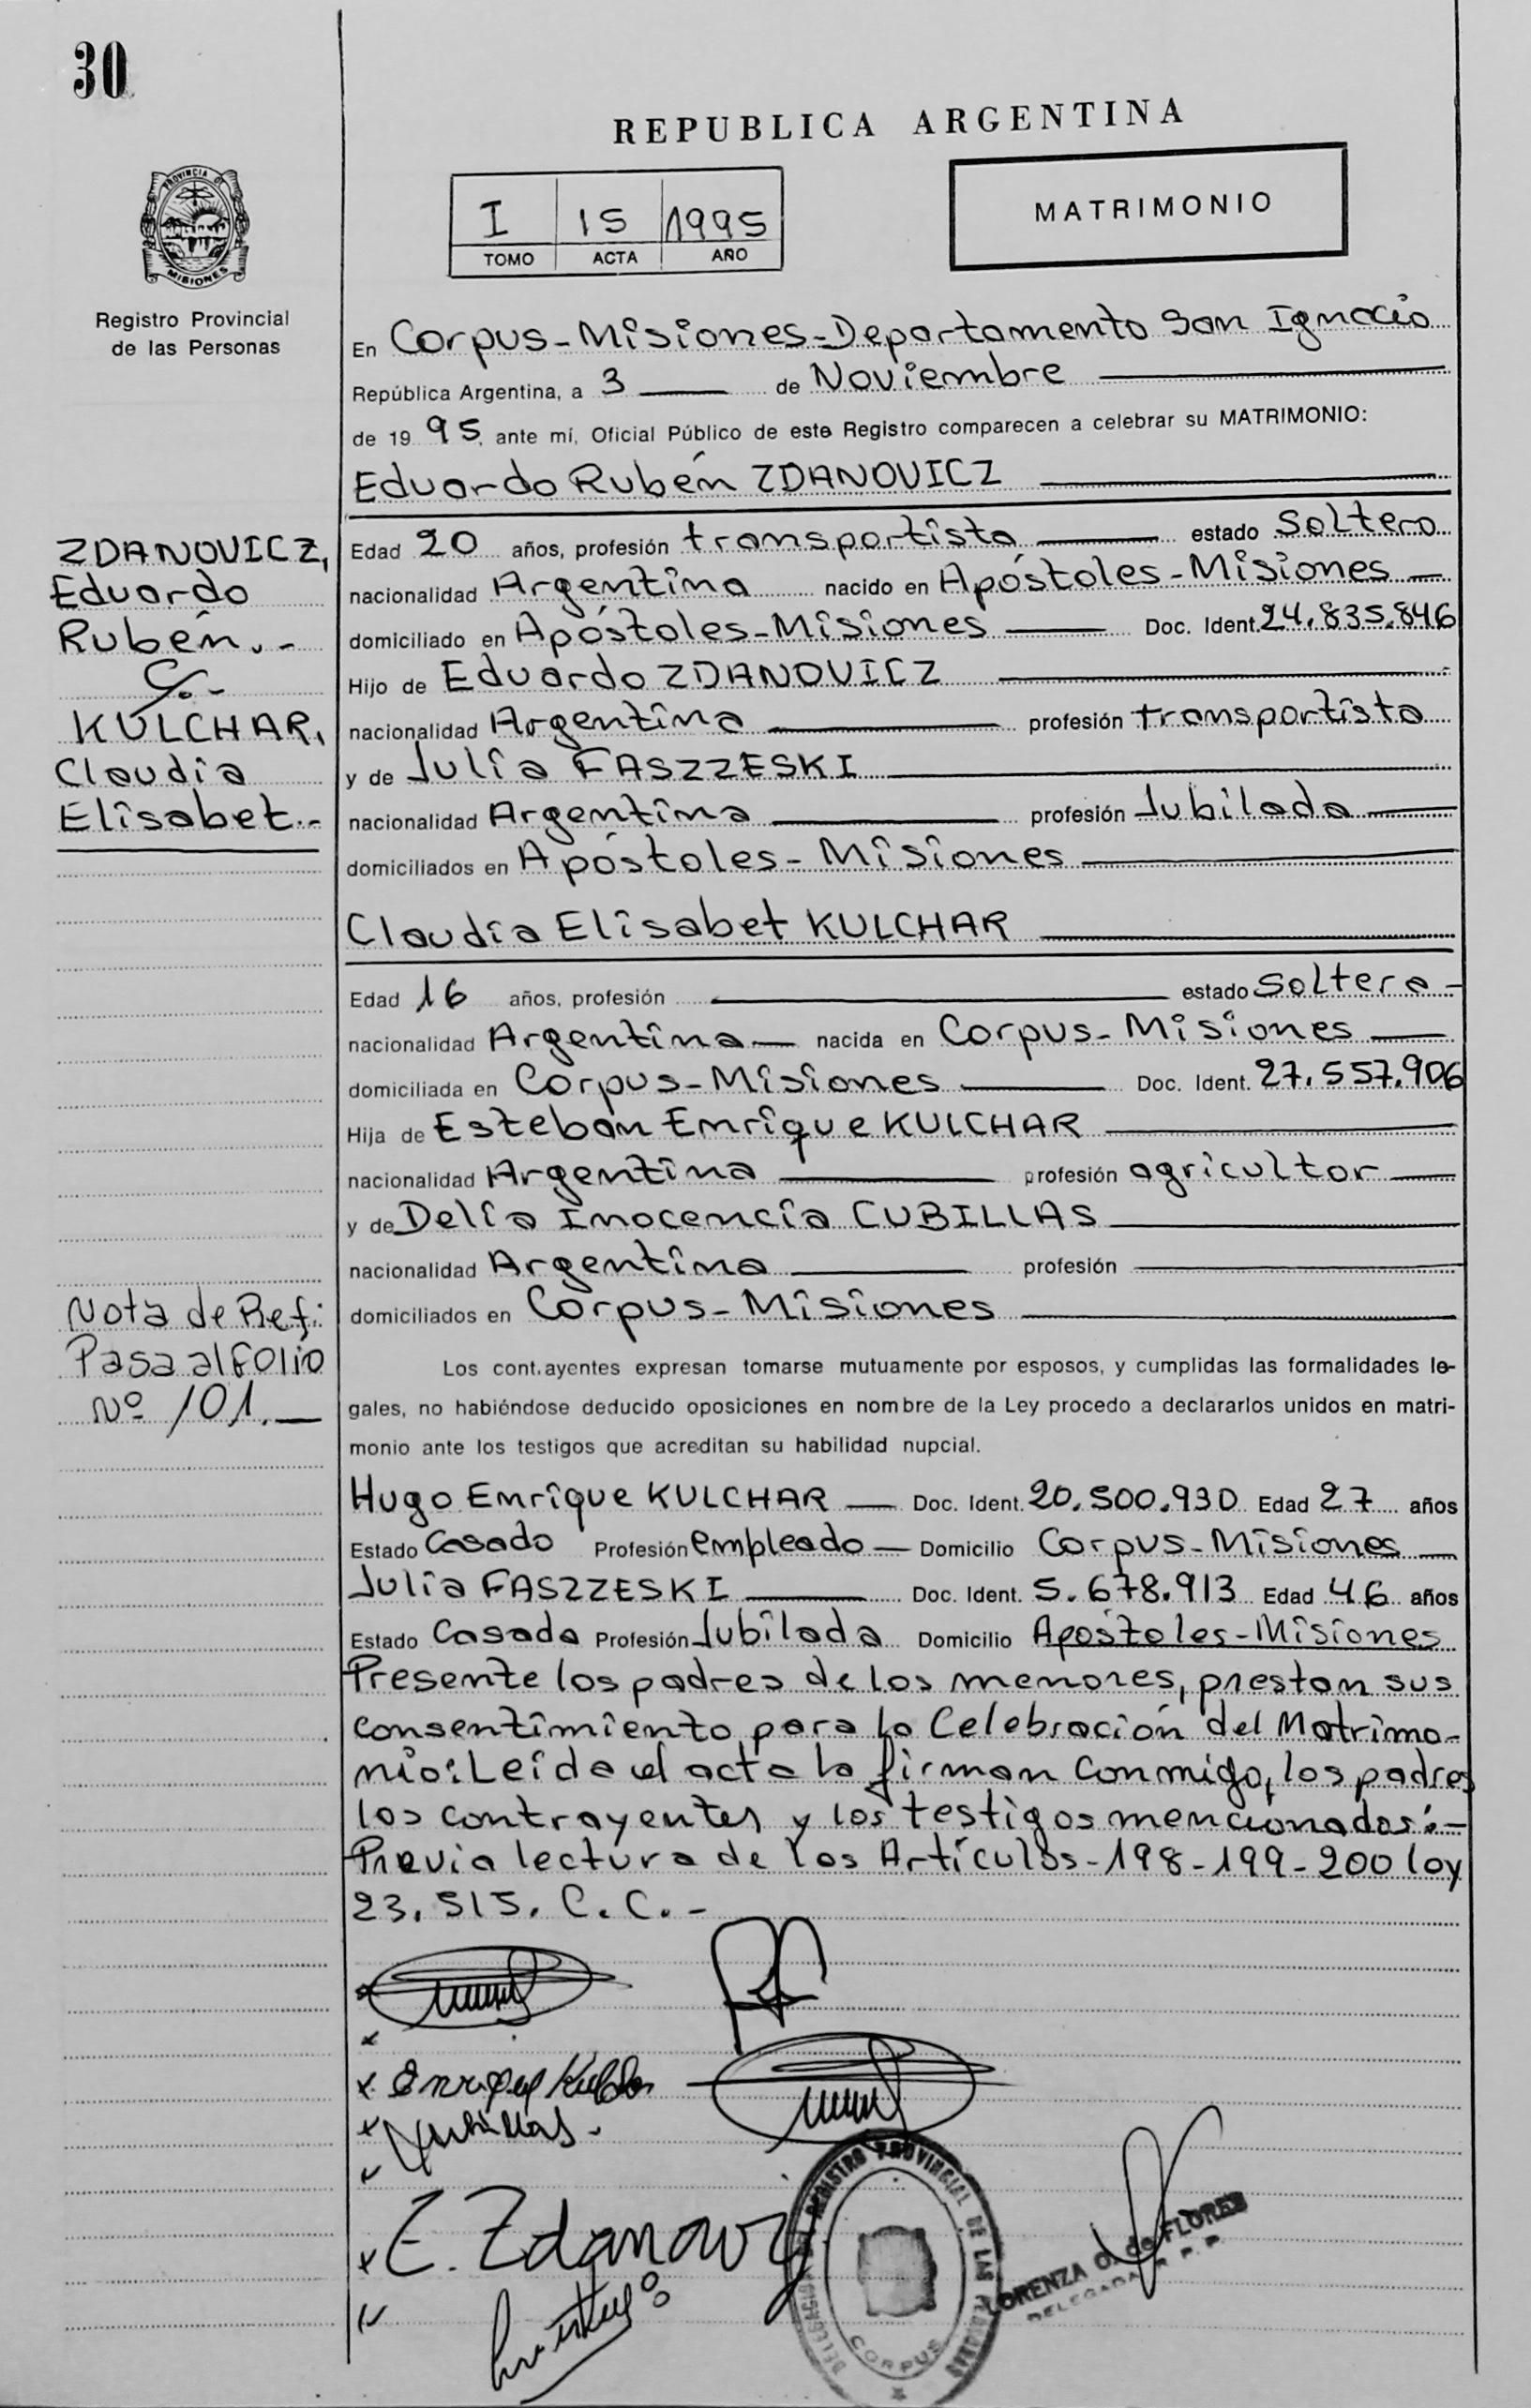 30
REPUBLICA ARGENTINA
PROVINCIA DE
MISIONES
Registro Provincial
de las Personas
I 15 1995
TOMO ACTA AÑO
MATRIMONIO
En Corpus-Misiones-Departamento San Ignacio
República Argentina, a 3 de Noviembre
de 19 95 ante mí, Oficial Público de este Registro comparecen a celebrar su MATRIMONIO:
Eduardo Rubén ZDANOVICZ
ZDANOVICZ,
Eduardo
Rubén.-
C/.-
KULCHAR,
Claudia
Elisabet.-
Edad 20 años, profesión transportista estado Soltero
nacionalidad Argentina nacido en Apóstoles-Misiones
domiciliado en Apóstoles-Misiones Doc. Ident. 24.835.846
Hijo de Eduardo ZDANOVICZ
nacionalidad Argentina profesión transportista
y de Julia FASZZESKI
nacionalidad Argentina profesión Jubilada
domiciliados en Apóstoles-Misiones
Claudia Elisabet KULCHAR
Edad 16 años, profesión estado Soltera-
nacionalidad Argentina nacida en Corpus-Misiones
domiciliada en Corpus-Misiones Doc. Ident. 27.557.906
Hija de Esteban Enrique KULCHAR
nacionalidad Argentina profesión agricultor
y de Delia Inocencia CUBILLAS
nacionalidad Argentina profesión
domiciliados en Corpus-Misiones
Nota de Ref:
Pasa al folio
Nº 101.
Los contrayentes expresan tomarse mutuamente por esposos, y cumplidas las formalidades le-
gales, no habiéndose deducido oposiciones en nombre de la Ley procedo a declararlos unidos en matri-
monio ante los testigos que acreditan su habilidad nupcial.
Hugo Enrique KULCHAR Doc. Ident. 20.500.930 Edad 27 años
Estado Casado Profesión empleado Domicilio Corpus-Misiones
Julia FASZZESKI Doc. Ident. 5.678.913 Edad 46 años
Estado Casada Profesión Jubilada Domicilio Apóstoles-Misiones
Presente los padres de los menores, prestan sus
consentimiento para la Celebración del Matrimo-
nio: Leída el acta la firman conmigo, los padres
los contrayentes y los testigos mencionados:-
Previa lectura de los Artículos-198-199-200 ley
23.515. C.C.-
Enrique Kulchar
E. Zdanovicz
REGISTRO PROVINCIAL DE LAS PERSONAS
CORPUS
LORENZA O. de FLORES
DELEGADA R. P. P.